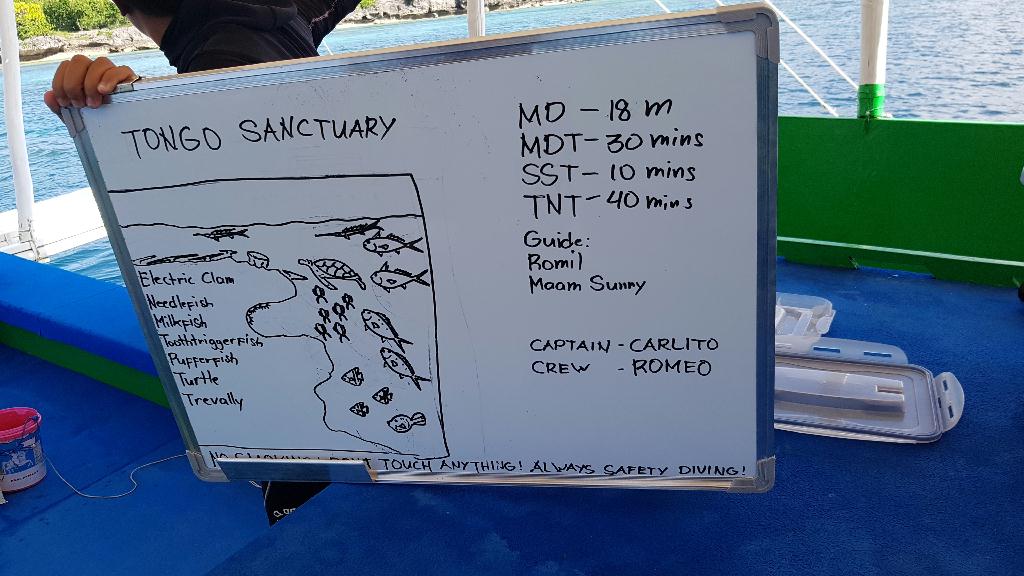 TONGO SANCTUARY
Electric Clam
Needlefish
Milkfish
Toothtriggerfish
Pufferfish
Turtle
Trevally
MD - 18 m
MDT - 30 mins
SST - 10 mins
TNT - 40 mins
Guide:
Romil
Maam Sunny
CAPTAIN - CARLITO
CREW - ROMEO
TOUCH ANYTHING! ALWAYS SAFETY DIVING!